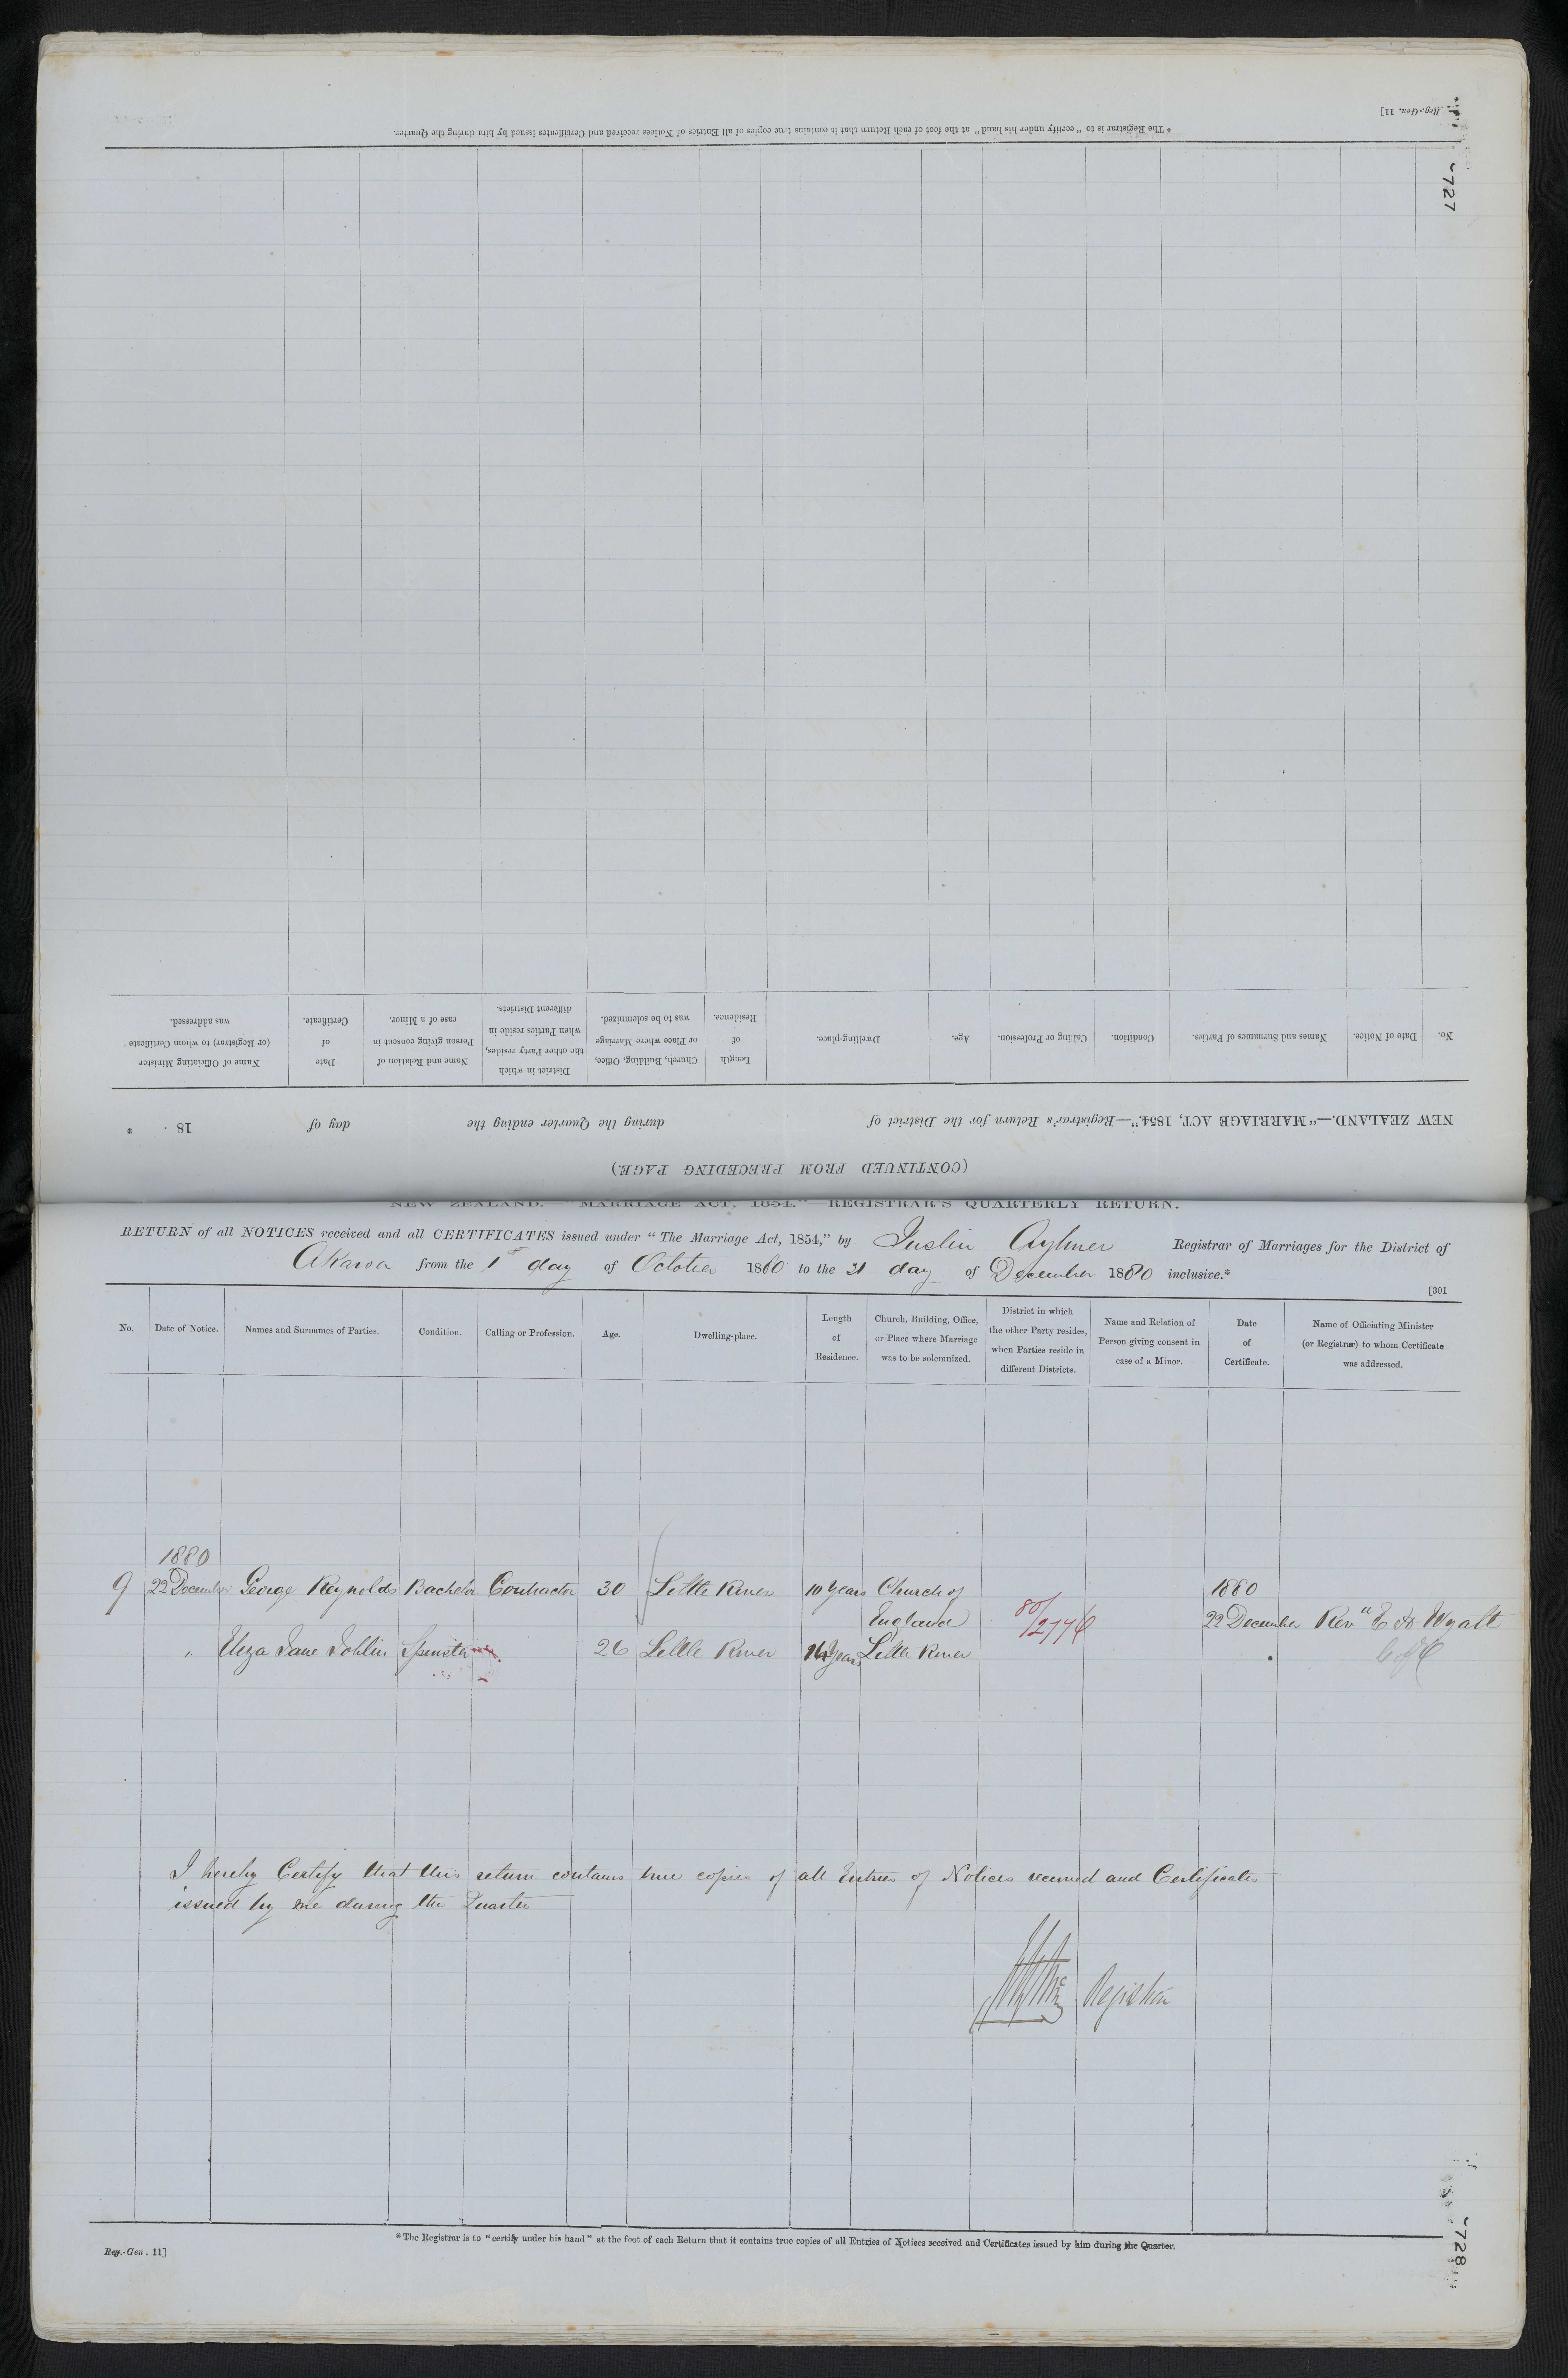 * The Registrar is to "certify under his hand" at the foot of each Return that it contains true copies of all Entries of Notices received and Certificates issued by him during the Quarter.
Reg.-Gen. 11]
727
Name of Officiating Minister (or Registrar) to whom Certificate was addressed.
Date of Certificate.
Name and Relation of Person giving consent in case of a Minor.
District in which the other Party resides, when Parties reside in different Districts.
Church, Building, Office, or Place where Marriage was to be solemnized.
Length of Residence.
Dwelling-place.
Age.
Calling or Profession.
Condition.
Names and Surnames of Parties.
Date of Notice.
No.
NEW ZEALAND.—"MARRIAGE ACT, 1854."—Registrar's Return for the District of during the Quarter ending the day of 18 . *
(CONTINUED FROM PRECEDING PAGE.)
NEW ZEALAND. "MARRIAGE ACT, 1854."—REGISTRAR'S QUARTERLY RETURN.
RETURN of all NOTICES received and all CERTIFICATES issued under "The Marriage Act, 1854," by Justin Aylmer Registrar of Marriages for the District of
Akaroa from the 1st day of October 1880 to the 31 day of December 1880 inclusive.*
[301
No.
Date of Notice.
Names and Surnames of Parties.
Condition.
Calling or Profession.
Age.
Dwelling-place.
Length of Residence.
Church, Building, Office, or Place where Marriage was to be solemnized.
District in which the other Party resides, when Parties reside in different Districts.
Name and Relation of Person giving consent in case of a Minor.
Date of Certificate.
Name of Officiating Minister (or Registrar) to whom Certificate was addressed.
1880
9 22 December George Reynolds Bachelor Contractor 30 Little River 10 Years Church of 1880
England 80/2776 22 December Revd E A Wyatt
" Eliza Jane Joblin Spinster 26 Little River Years Little River C of E
I hereby Certify that this return contains true copies of all Entries of Notices received and Certificates
issued by me during the Quarter
Registrar
* The Registrar is to "certify under his hand" at the foot of each Return that it contains true copies of all Entries of Notices received and Certificates issued by him during the Quarter.
Reg.-Gen. 11]
728